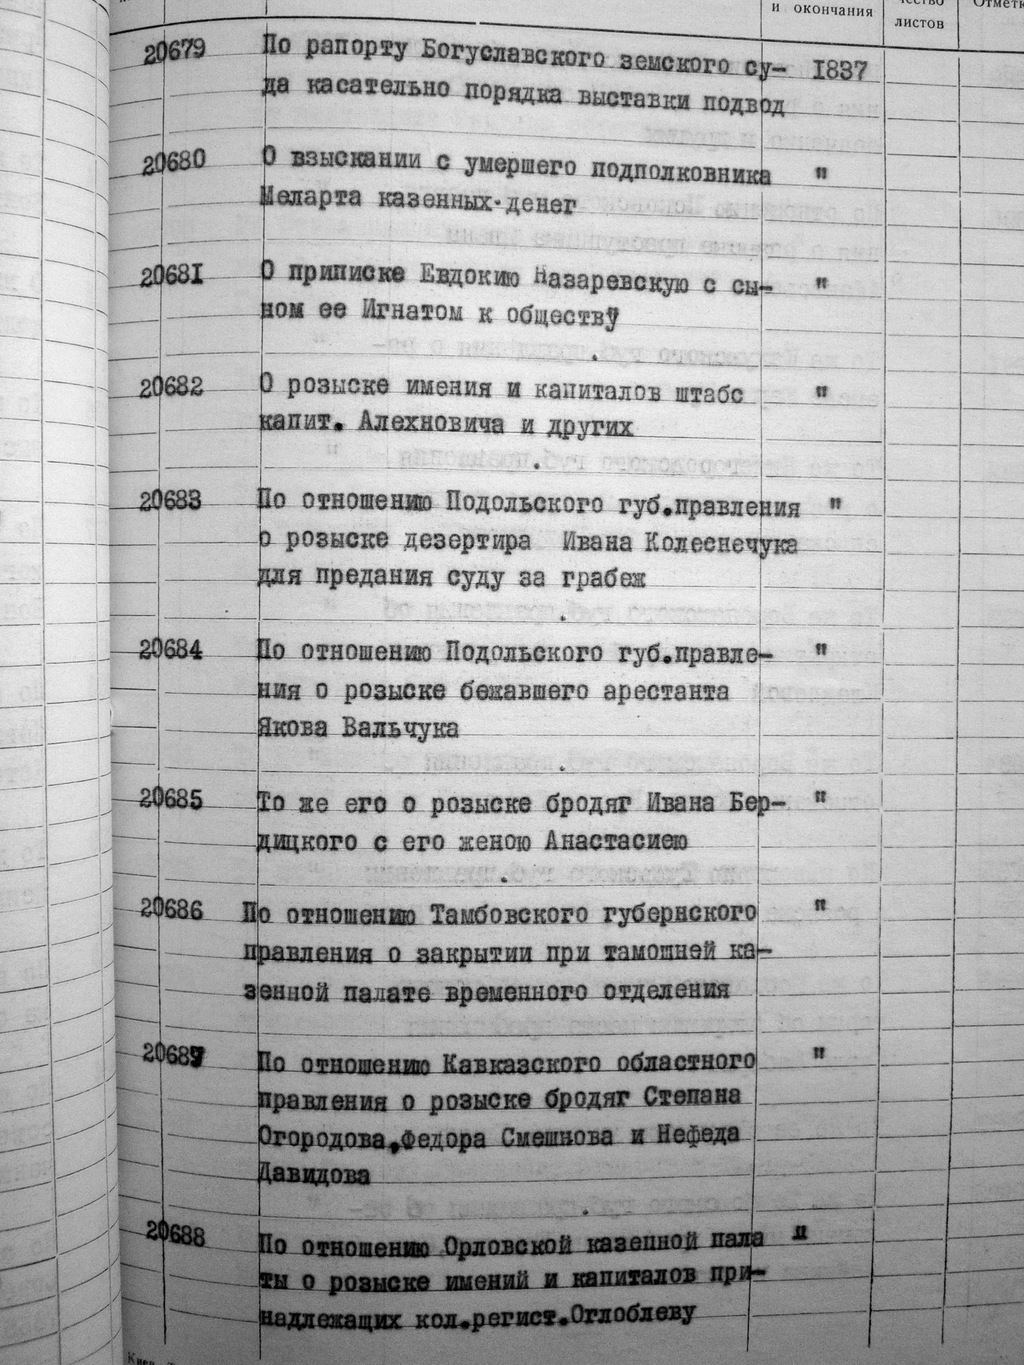 и окончания
листов
20679 По рапорту Богуславского земского су- 1837
да касательно порядка выставки подвод
20680 О взыскании с умершего подполковника "
Меларта казенных денег
20681 О приписке Евдокию Назаревскую с сы- "
ном ее Игнатом к обществу
20682 О розыске имения и капиталов штабс "
капит. Алехновича и других
20683 По отношению Подольского губ.правления "
о розыске дезертира Ивана Колеснечука
для предания суду за грабеж
20684 По отношению Подольского губ.правле- "
ния о розыске бежавшего арестанта
Якова Вальчука
20685 То же его о розыске бродяг Ивана Бер- "
дицкого с его женою Анастасиею
20686 По отношению Тамбовского губернского "
правления о закрытии при тамошней ка-
зенной палате временного отделения
20687 По отношению Кавказского областного "
правления о розыске бродяг Степана
Огородова,Федора Смешнова и Нефеда
Давидова
20688 По отношению Орловской казенной пала "
ты о розыске имений и капиталов при-
надлежащих кол.регист.Оглоблеву